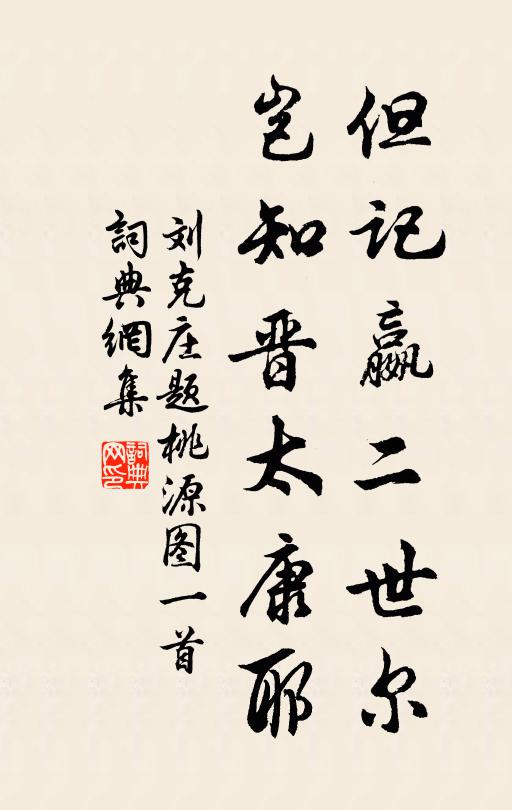 但记嬴二世尔
岂知晋太康耶
刘克庄题桃源图一首
詞典網集
詞典网印